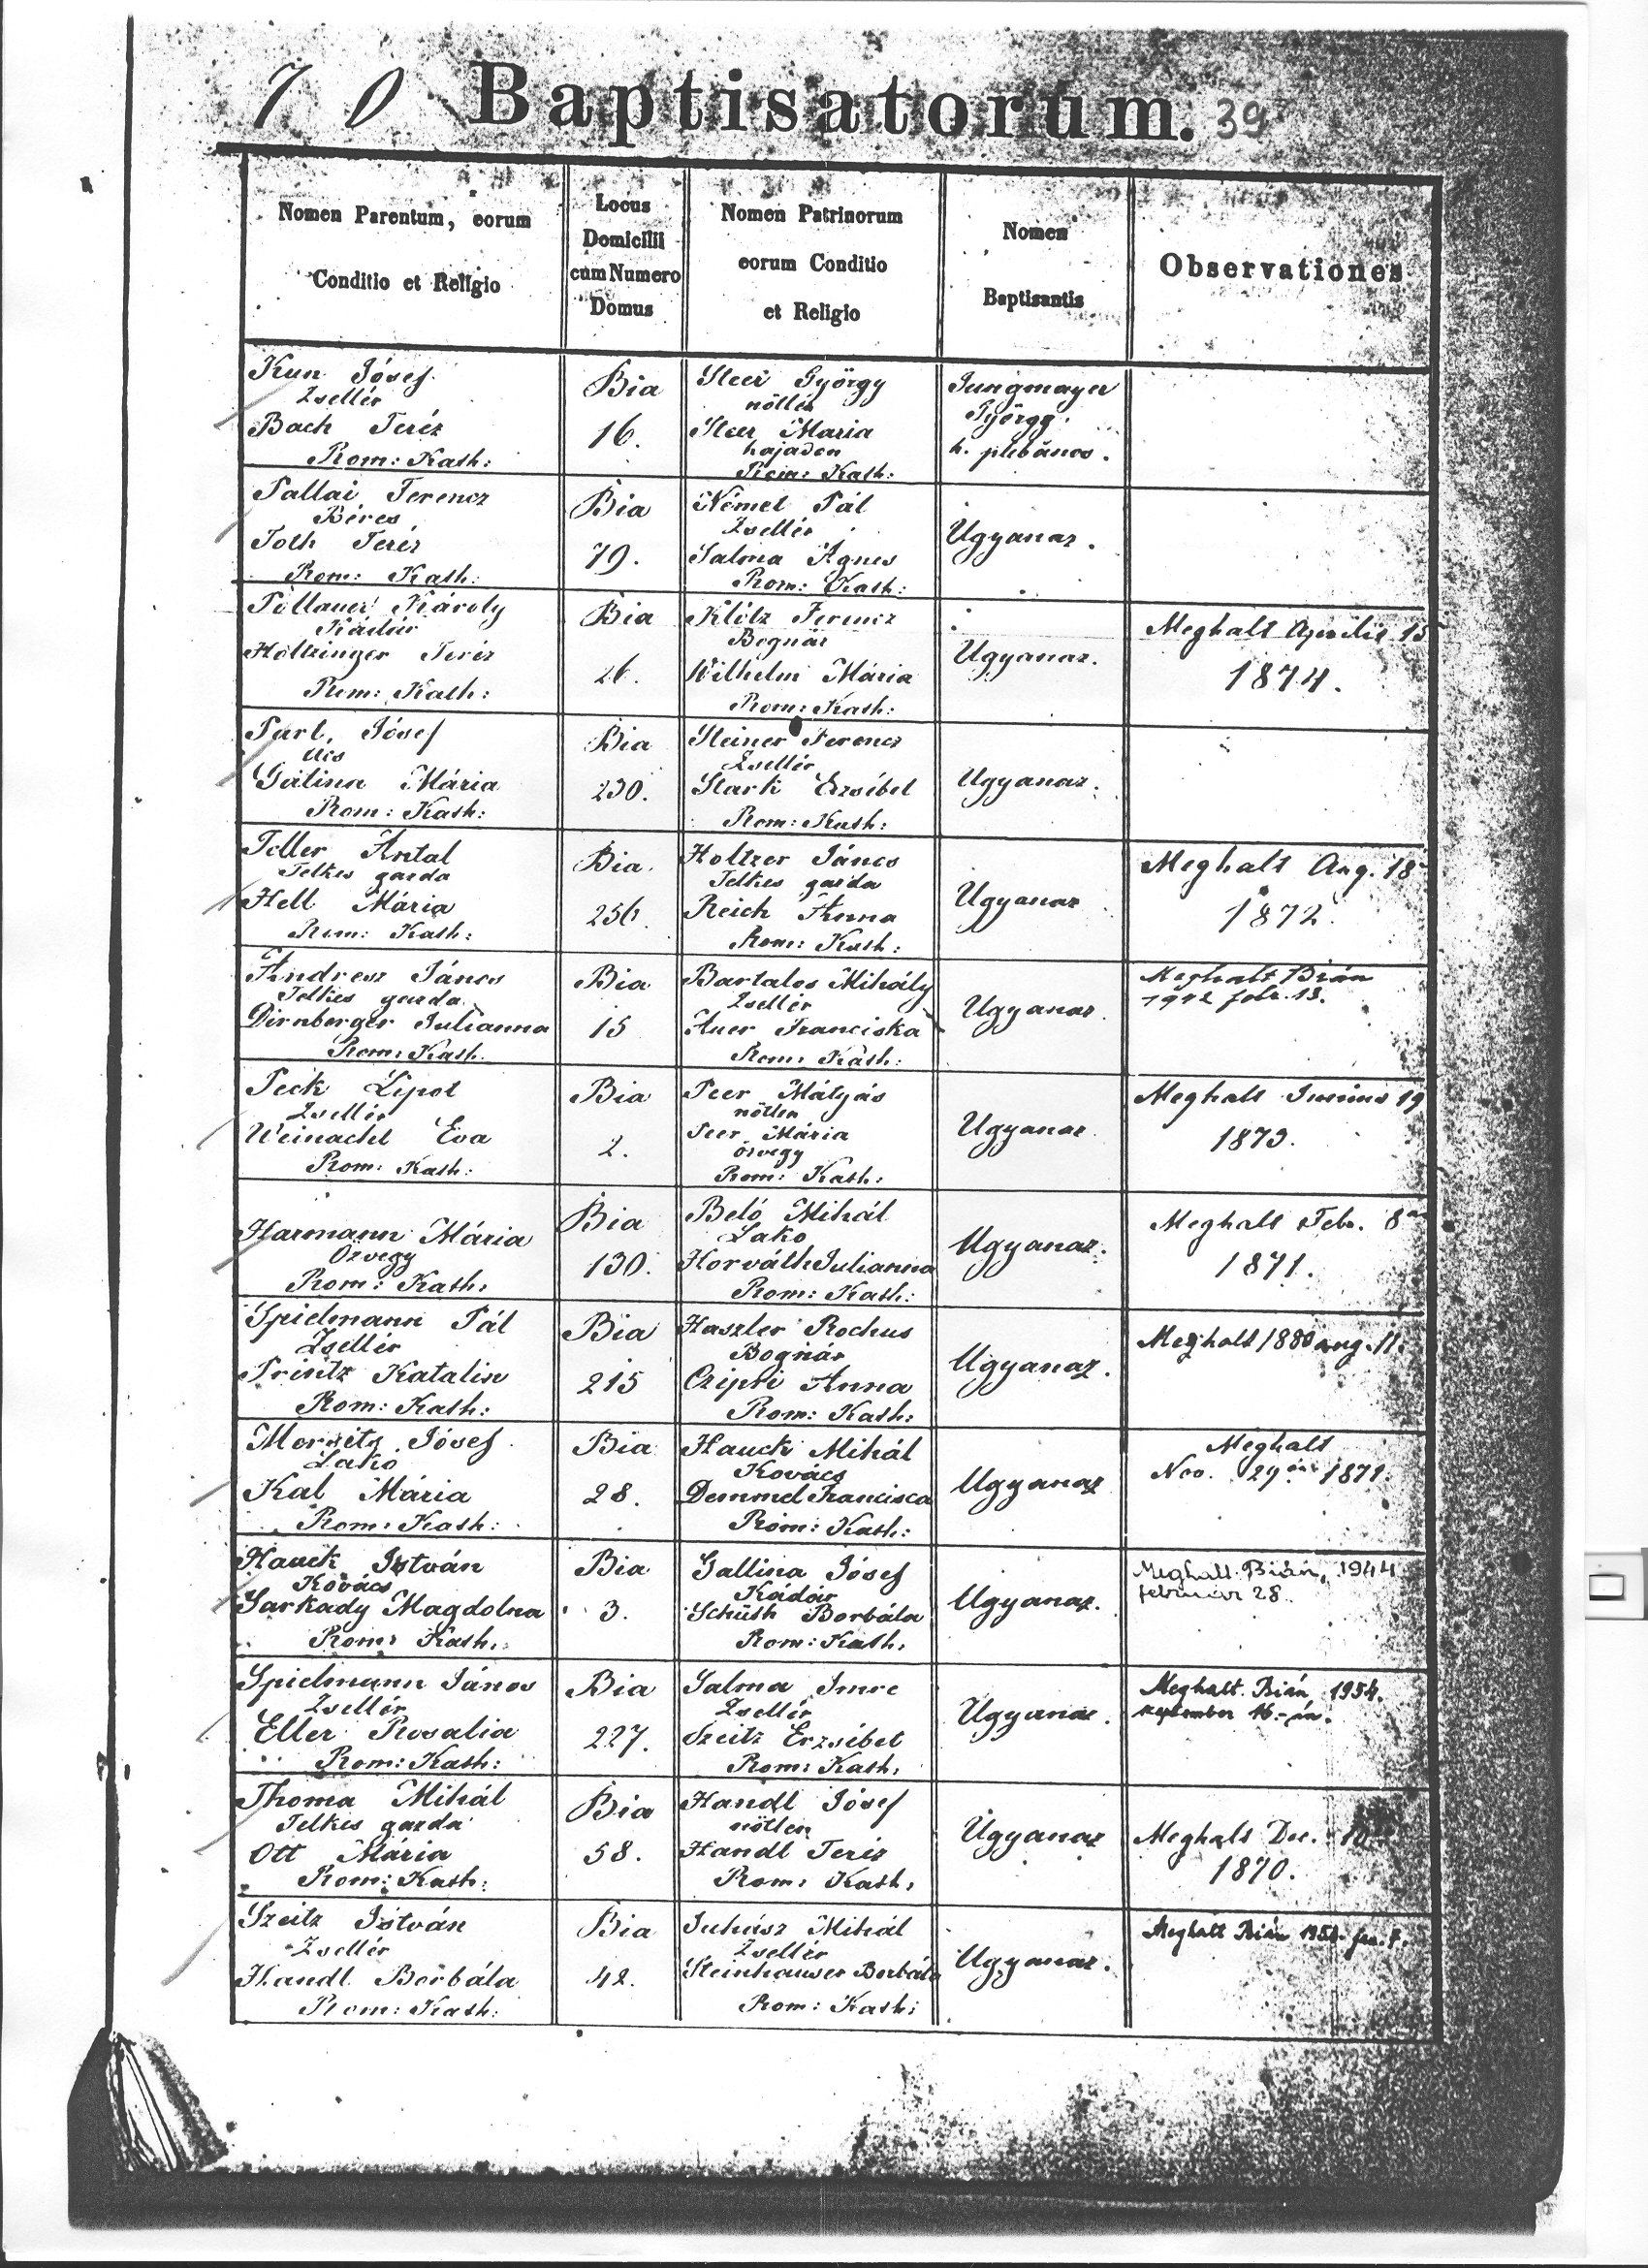 70 Baptisatorum. 39
Nomen Parentum, eorum
Conditio et Religio
Locus
Domicilii
cum Numero
Domus
Nomen Patrinorum
eorum Conditio
et Religio
Nomen
Baptisantis
Observationes
Kun Jósef
Zsellér
Bach Teréz
Rom: Kath:
Bia
16.
Steer György
nőtlen
Steer Maria
hajadon
Rom: Kath:
Jungmayer
György
h. plébános.
Pallai Ferencz
Béres
Toth Teréz
Rom: Kath:
Bia
79.
Német Pál
Zsellér
Salma Ágnes
Rom: Kath:
Ugyanaz.
Pollauer Károly
Kádár
Holtzinger Teréz
Rom: Kath:
Bia
26.
Klötz Ferencz
Bognár
Wilhelm Mária
Rom: Kath:
Ugyanaz.
Meghalt Aprilis 15
1874.
Part, Jósef
Ács
Gálina Mária
Rom: Kath:
Bia
230.
Steiner Ferencz
Zsellér
Stark Erzsébet
Rom: Kath:
Ugyanaz.
Teller Antal
Telkes gazda
Hell Mária
Rom: Kath:
Bia.
256.
Holtzer János
Telkes gazda
Reich Anna
Rom: Kath:
Ugyanaz
Meghalt Aug. 18
1872.
Andresz János
Telkes gazda
Dirnberger Julianna
Rom: Kath.
Bia
15
Bartalos Mihály
Zsellér
Auer Franciska
Rom: Kath:
Ugyanaz.
Meghalt Bián
1942 febr. 13.
Peck Lipot
Zsellér
Weinachl Éva
Rom: Kath:
Bia
2.
Peer Mátyás
nőtlen
Peer Mária
özvegy
Rom: Kath:
Ugyanaz.
Meghalt Junius 19
1873.
Harmann Mária
Özvegy
Rom: Kath:
Bia
130.
Beló Mihál
Lakó
Horváth Julianna
Rom: Kath:
Ugyanaz.
Meghalt Febr. 8
1871.
Spielmann Pál
Zsellér
Printz Katalin
Rom: Kath:
Bia
215
Haszler Rochus
Bognár
Czipri Anna
Rom: Kath:
Ugyanaz.
Meghalt 1880 aug. 11.
Jósef
Lakó
Kal Mária
Rom: Kath:
Bia
28.
Hauck Mihál
Kovács
Demmel Francisca
Rom: Kath:
Ugyanaz
Meghalt
Nov. 29 én 1871.
Hauck István
Kovács
Sarkady Magdolna
Rom: Kath:
Bia
3.
Gallina Jósef
Kádár
Schüth Borbála
Rom: Kath:
Ugyanaz.
Meghalt Bián, 1944
február 28.
Spielmann János
Zsellér
Eller Rosalia
Rom: Kath:
Bia
227.
Salma Imre
Zsellér
Szeitz Erzsébet
Rom: Kath:
Ugyanaz.
Meghalt Bián 1954.
szeptember 16.-án.
Thoma Mihál
Telkes gazda
Ott Mária
Rom: Kath:
Bia
58.
Handl Jósef
nőtlen
Handl Teréz
Rom: Kath:
Ugyanaz
Meghalt Dec. 10
1870.
Szeitz István
Zsellér
Handl Borbála
Rom: Kath:
Bia
42.
Juhász Mihál
Zsellér
Steinhauser Borbála
Rom: Kath:
Ugyanaz.
Meghalt Bián